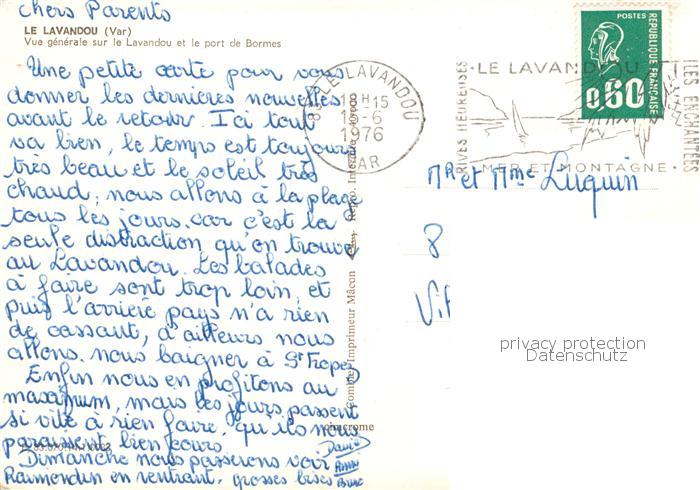 chers Parents
LE LAVANDOU (Var)
Vue générale sur le Lavandou et le port de Bormes
Une petite carte pour vous
donner les dernières nouvelles
avant le retour. Ici tout
va bien, le temps est toujours
très beau et le soleil très
chaud; nous allons à la plage
tous les jours. car c'est la
seule distraction qu'on trouve
au Lavandou. Les balades
à faire sont trop loin, et
puis l'arrière pays n'a rien
de cassant, d'ailleurs nous
allons. nous baigner à St Tropez
Enfin nous en profitons au
maximum, mais les jours passent
si vite à rien faire, qu'ils nous
paraissent bien cours.
Dimanche nous passerons voir
Raimondin en rentrant. grosses bises
Combier Imprimeur Mâcon
cimcrome
LE LAVANDOU
18 H 15
-6
1976
VAR
RIVES HEUREUSES
LE LAVANDOU
ILES ENCHANTEES
MER ET MONTAGNE
POSTES
REPUBLIQUE FRANÇAISE
0,60
Mr et Mme Luquin
8
privacy protection
Datenschutz